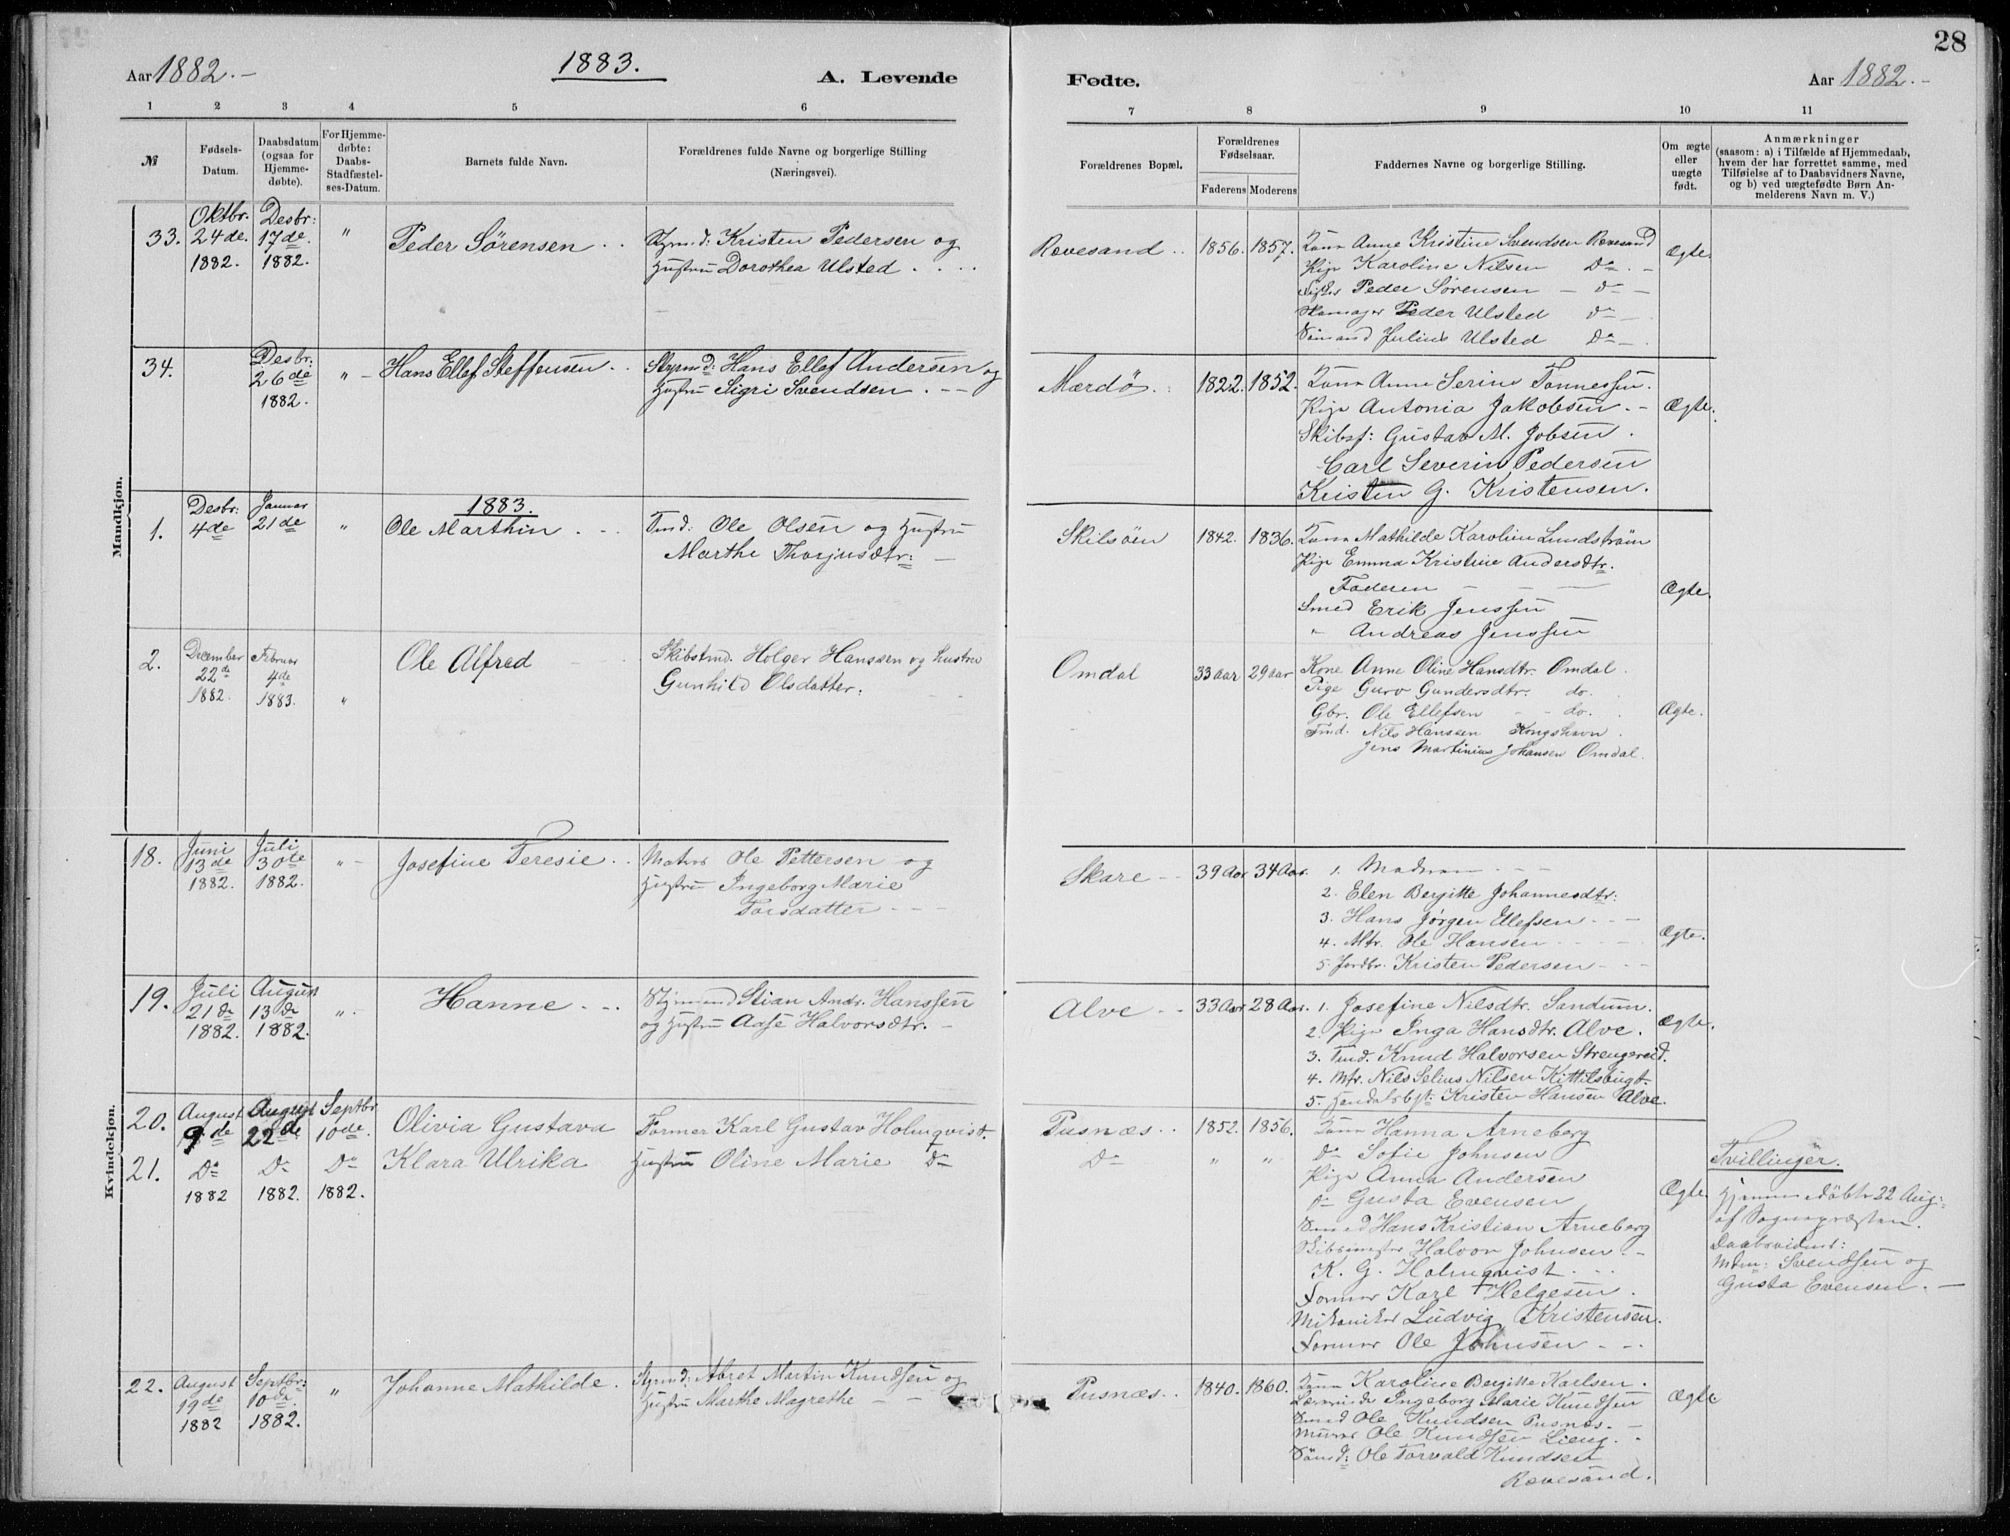 28
Aar 1882.
1883.
A. Levende
Fødte.
Aar 1882.
1 2 3 4 5 6 7 8 9 10 11
№
Fødsels-Datum.
Daabsdatum (ogsaa for Hjemme-døbte).
For Hjemme-døbte: Daabs-Stadfæstel-ses-Datum.
Barnets fulde Navn.
Forældrenes fulde Navne og borgerlige Stilling
(Næringsvei).
Forældrenes Bopæl.
Forældrenes Fødselsaar.
Faderens Moderens
Faddernes Navne og borgerlige Stilling.
Om ægte eller uægte født.
Anmærkninger
(saasom: a) i Tilfælde af Hjemmedaab,
hvem der har forrettet samme, med
Tilføielse af to Daabsvidners Navne,
og b) ved uægtefødte Børn An-
melderens Navn m. V.)
Mandkjøn.
33. Oktbr. 24de. 1882. Desbr: 17de. 1882. " Peder Sørensen
Styrmd: Kristen Pedersen og
Hustru Dorothea Ulsted
Rævesand 1856. 1857.
Kone Anne Kristine Svendsen Rævesand
Pige Karoline Nilsen Do
Peder Sørensen Do
Peder Ulsted Do
Sømand Julius Ulsted Do
Ægte.
34. Desbr: 26de 1882. " Hans Ellef Steffensen
Styrmd: Hans Ellef Andersen og
Hustru Sigri Svendsen
Mærdø 1822. 1852.
Kone Anne Serine Tønnessen.
Pige Antonia Jakobsen.
Skibsf: Gustav M. Jobsen.
Carl Severin Pedersen
Kristen G. Kristensen.
Ægte.
1883.
1. Desbr: 4de Januar 21de " Ole Marthin
Tmd: Ole Olsen og Hustru
Marthe Thorjusdtr:
Skilsøen 1842. 1836.
Kone Mathilde Karoline Lundstrøm
Pige Emma Kristine Andersdtr.
Faderen
Smed Erik Jenssen
" Andreas Jenssen
Ægte.
2. December 22de 1882. Februar 4de 1883. " Ole Alfred
Skibstmd. Holger Hanssen og hustru
Gunhild Olsdatter.
Omdal 33 aar 29 aar
Kone Anne Oline Hansdtr. Omdal.
Pige Guro Gundersdtr. do.
Gbr. Ole Ellefsen do.
Tmd. Nils Hanssen Kongshavn
Jens Martinius Johansen Omdal.
Ægte.
Kvindekjøn.
18. Juni 13de 1882. Juli 30te 1882. " Josefine Teresie
Matros Ole Pettersen og
Hustru Ingeborg Marie
Torsdatter
Skare 39 Aar 34 Aar.
1. Moderen
2. Elen Bergitte Johannesdtr:
3. Hans Jørgen Ellefsen
4. Mtr. Ole Hansen
5. Jordbr. Kristen Pedersen
Ægte.
19. Juli 21de 1882. August 13de 1882. " Hanne
Styrmand Stian Andr. Hanssen
og Hustru Aase Halvorsdtr.
Alve 33 Aar 28 Aar.
1. Josefine Nilsdtr. Sandum.
2. Pige Inga Hansdtr. Alve.
3. Tmd. Knud Halvorsen Strengereid.
4. Mtr. Nils Selius Nilsen Kittilsbugt.
5. Handelsbst: Kristen Hansen Alve.
Ægte.
20. August 9de August 22de Septbr 10de. Olivia Gustava
Former Karl Gustav Holmqvist.
21. Do 1882 Do 1882. Do 1882. Klara Ulrika
Hustru Oline Marie Do
Pusnæs 1852. 1856.
Do " "
Kone Hanna Arneberg
Do Sofie Johnsen
Pige Anna Andersen
Do Gusta Evensen
Smed Hans Kristian Arneberg
Halvor Johnsen
K. G. Holmqvist
Former Karl Helgesen.
Mekaniker Ludvig Kristensen.
Former Ole Johnsen
Ægte
Tvillinger.
Hjemmedøbte 22 Aug:
af Sognepræsten.
Daabsvidner:
Mdm: Svendsen og
Gusta Evensen.
22. August 19de 1882 Septbr: 10de 1882. " Johanne Mathilde.
Styrmd: Abret Martin Knudsen og
Hustru Marthe Magrethe
Pusnæs 1840. 1860.
Kone Karoline Bergitte Karlsen.
Ingeborg Marie Knudsen
Smed Ole Knudsen Pusnæs.
Murer Ole Knudsen Lieng.
Sømd: Ole Torvald Knudsen
Rævesand.
Ægte